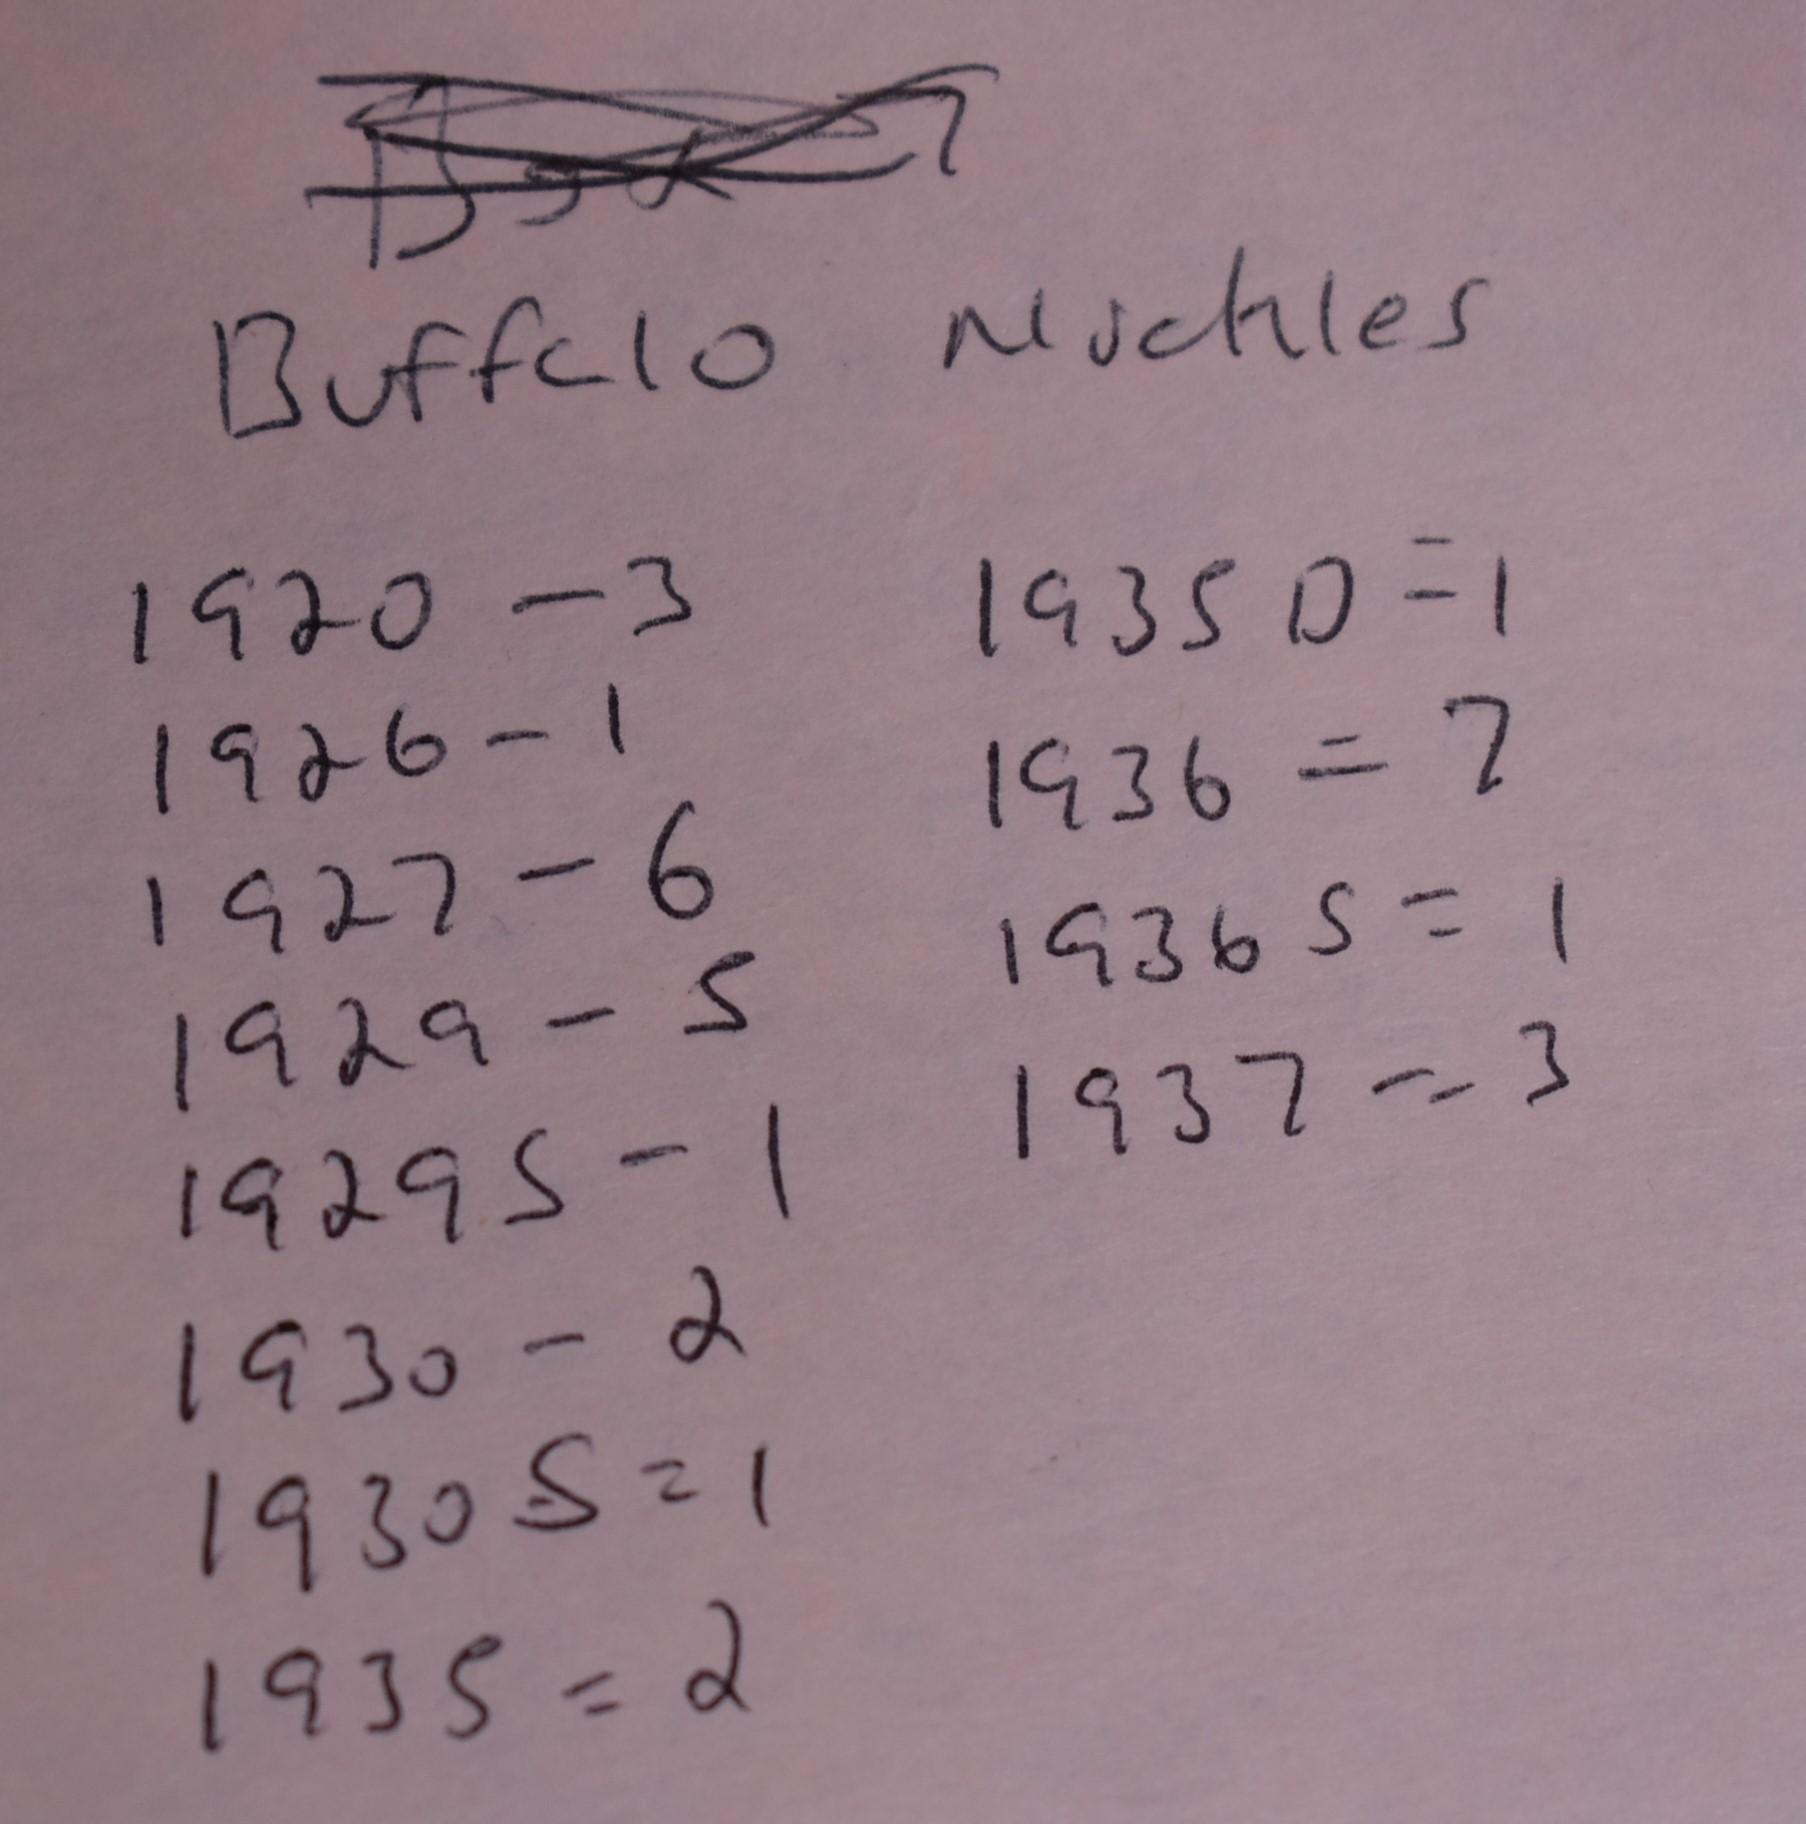 Buffalo Nickles
1920 - 3
1926 - 1
1927 - 6
1929 - 5
1929 S - 1
1930 - 2
1930 S = 1
1935 = 2
1935 D = 1
1936 = 7
1936 S = 1
1937 = 3